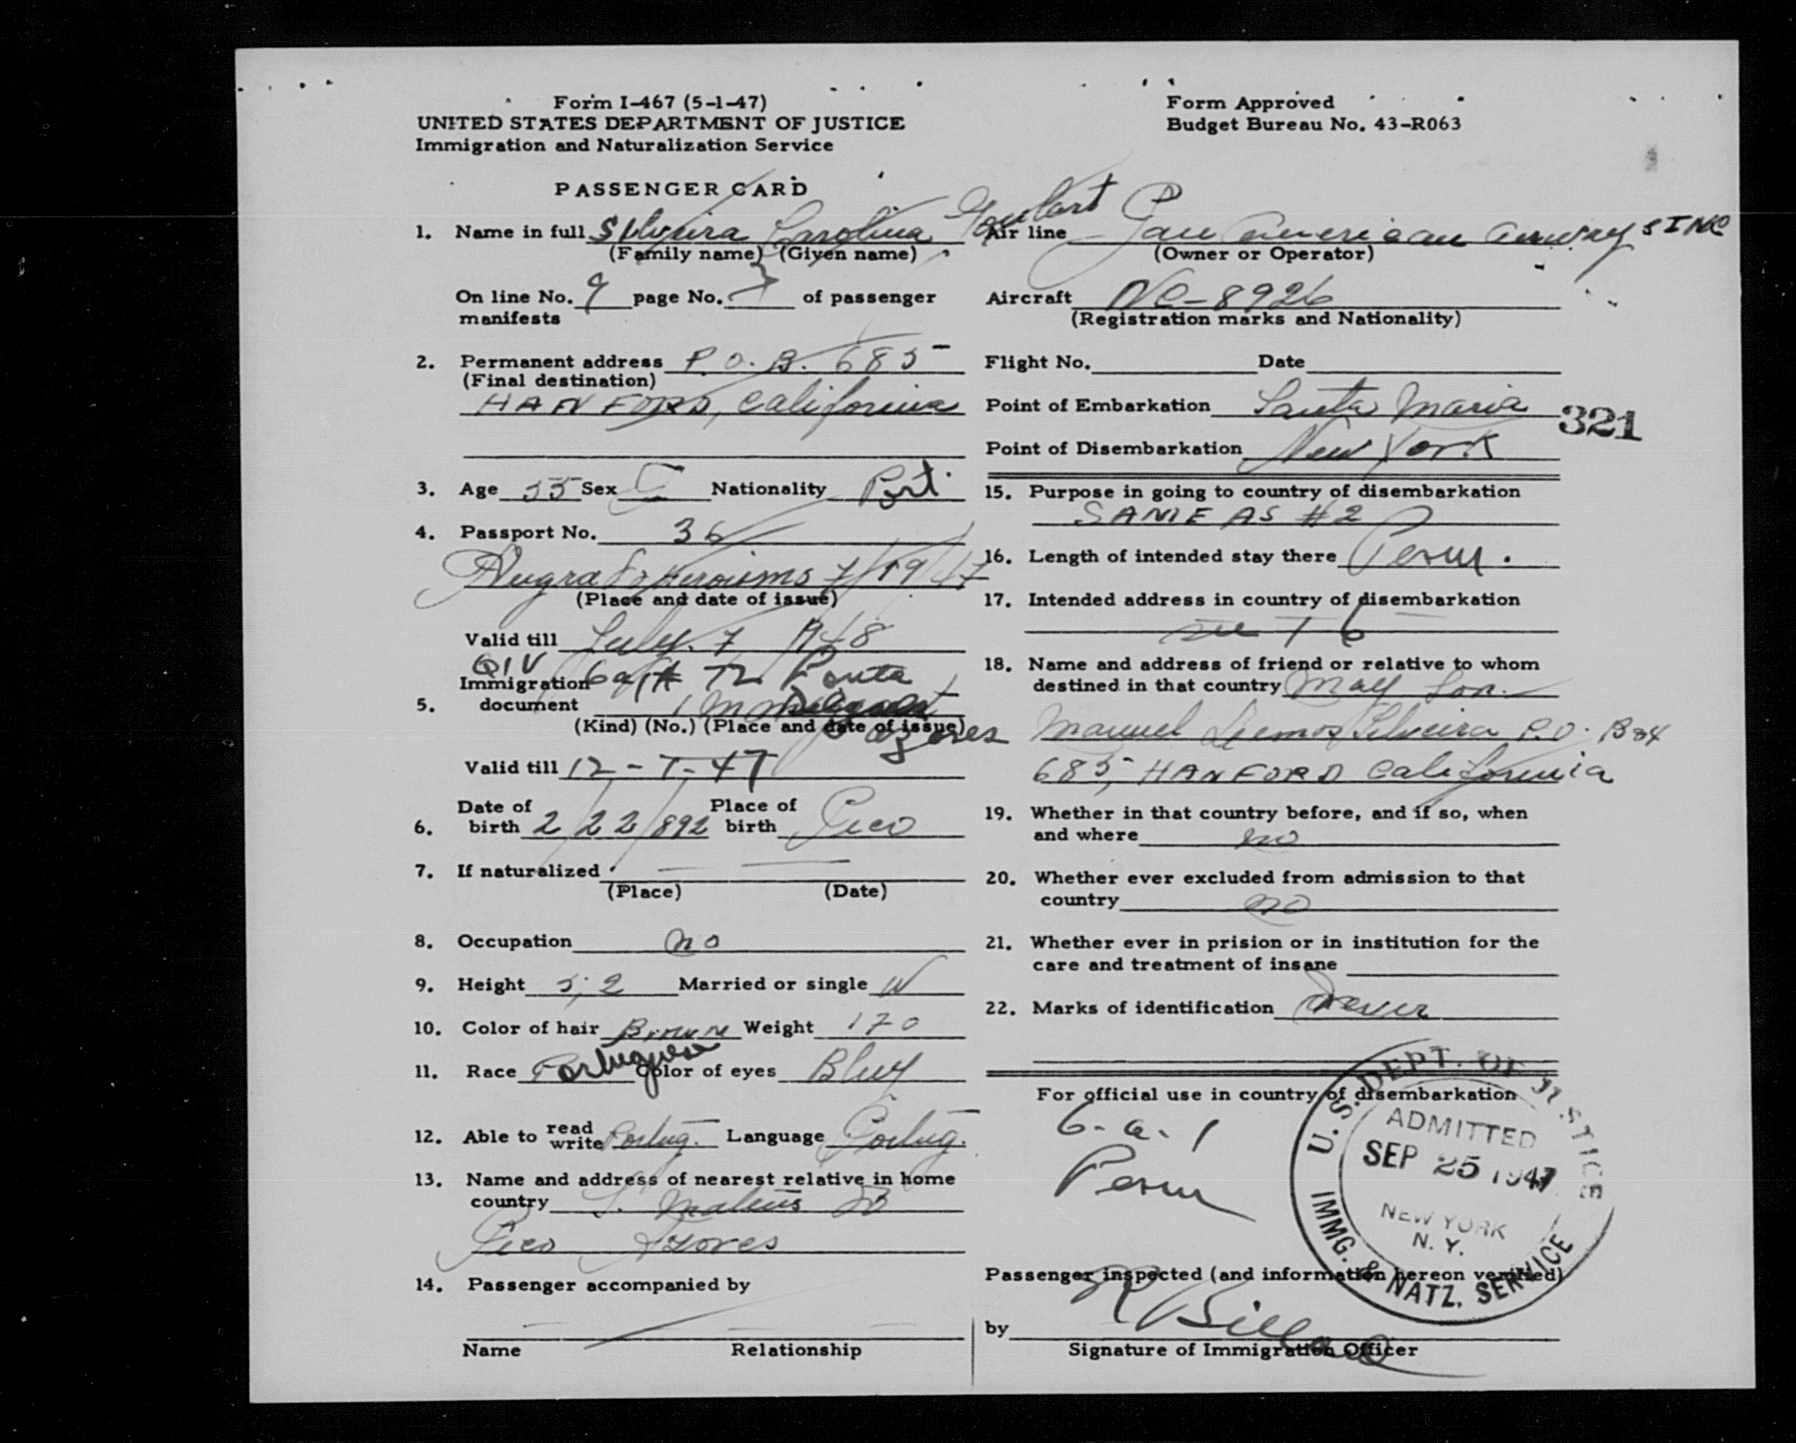 Form I-467 (5-1-47)
UNITED STATES DEPARTMENT OF JUSTICE
Immigration and Naturalization Service
Form Approved
Budget Bureau No. 43-R063
PASSENGER CARD
1. Name in full Silveira Carolina Goulart
(Family name) (Given name)
On line No. 9 page No. of passenger
manifests
2. Permanent address P.O.B. 685
(Final destination)
HANFORD, California
3. Age 55 Sex Nationality Port.
4. Passport No. 36
Heroismo 7/19/47
(Place and date of issue)
Valid till July. 7 1948
QIV
Immigration 6a1 # 72 Ponta
5. document Immigrant
(Kind) (No.) (Place and date of issue)
Azores
Valid till 12-7-47
6. Date of birth 2/22/892 Place of birth Pico
7. If naturalized
(Place) (Date)
8. Occupation no
9. Height 5,2 Married or single W
10. Color of hair Brown Weight 170
11. Race Portuguese Color of eyes Bluy
12. Able to read write Portug. Language Portug.
13. Name and address of nearest relative in home
country S. Mateus
Pico Azores
14. Passenger accompanied by
Name Relationship
Air line Pan American Airways INC
(Owner or Operator)
Aircraft NC-8926
(Registration marks and Nationality)
Flight No. Date
Point of Embarkation Santa Maria
321
Point of Disembarkation New York
15. Purpose in going to country of disembarkation
SAME AS #2
16. Length of intended stay there Perm.
17. Intended address in country of disembarkation
18. Name and address of friend or relative to whom
destined in that country May Son.
Manuel Lemos Silveira P.O. Box
685, HANFORD California
19. Whether in that country before, and if so, when
and where no
20. Whether ever excluded from admission to that
country no
21. Whether ever in prision or in institution for the
care and treatment of insane
22. Marks of identification never
For official use in country of disembarkation
6-a-1
Perm
U.S. DEPT. OF JUSTICE
ADMITTED
SEP 25 1947
NEW YORK
N. Y.
IMMG. & NATZ. SERVICE
Passenger inspected (and information hereon verified)
by
Signature of Immigration Officer